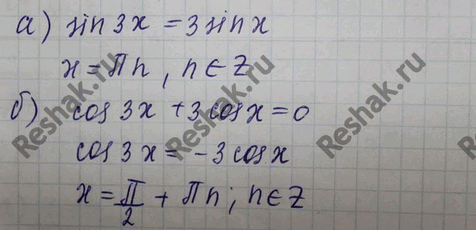 а) sin 3x = 3 sin x
x = Πn, n ∈ Z
б) cos 3x + 3 cos x = 0
cos 3x = -3 cos x
x = Π/2 + Πn; n ∈ Z
Reshak.ru
Reshak.ru
Reshak.ru
Reshak.ru